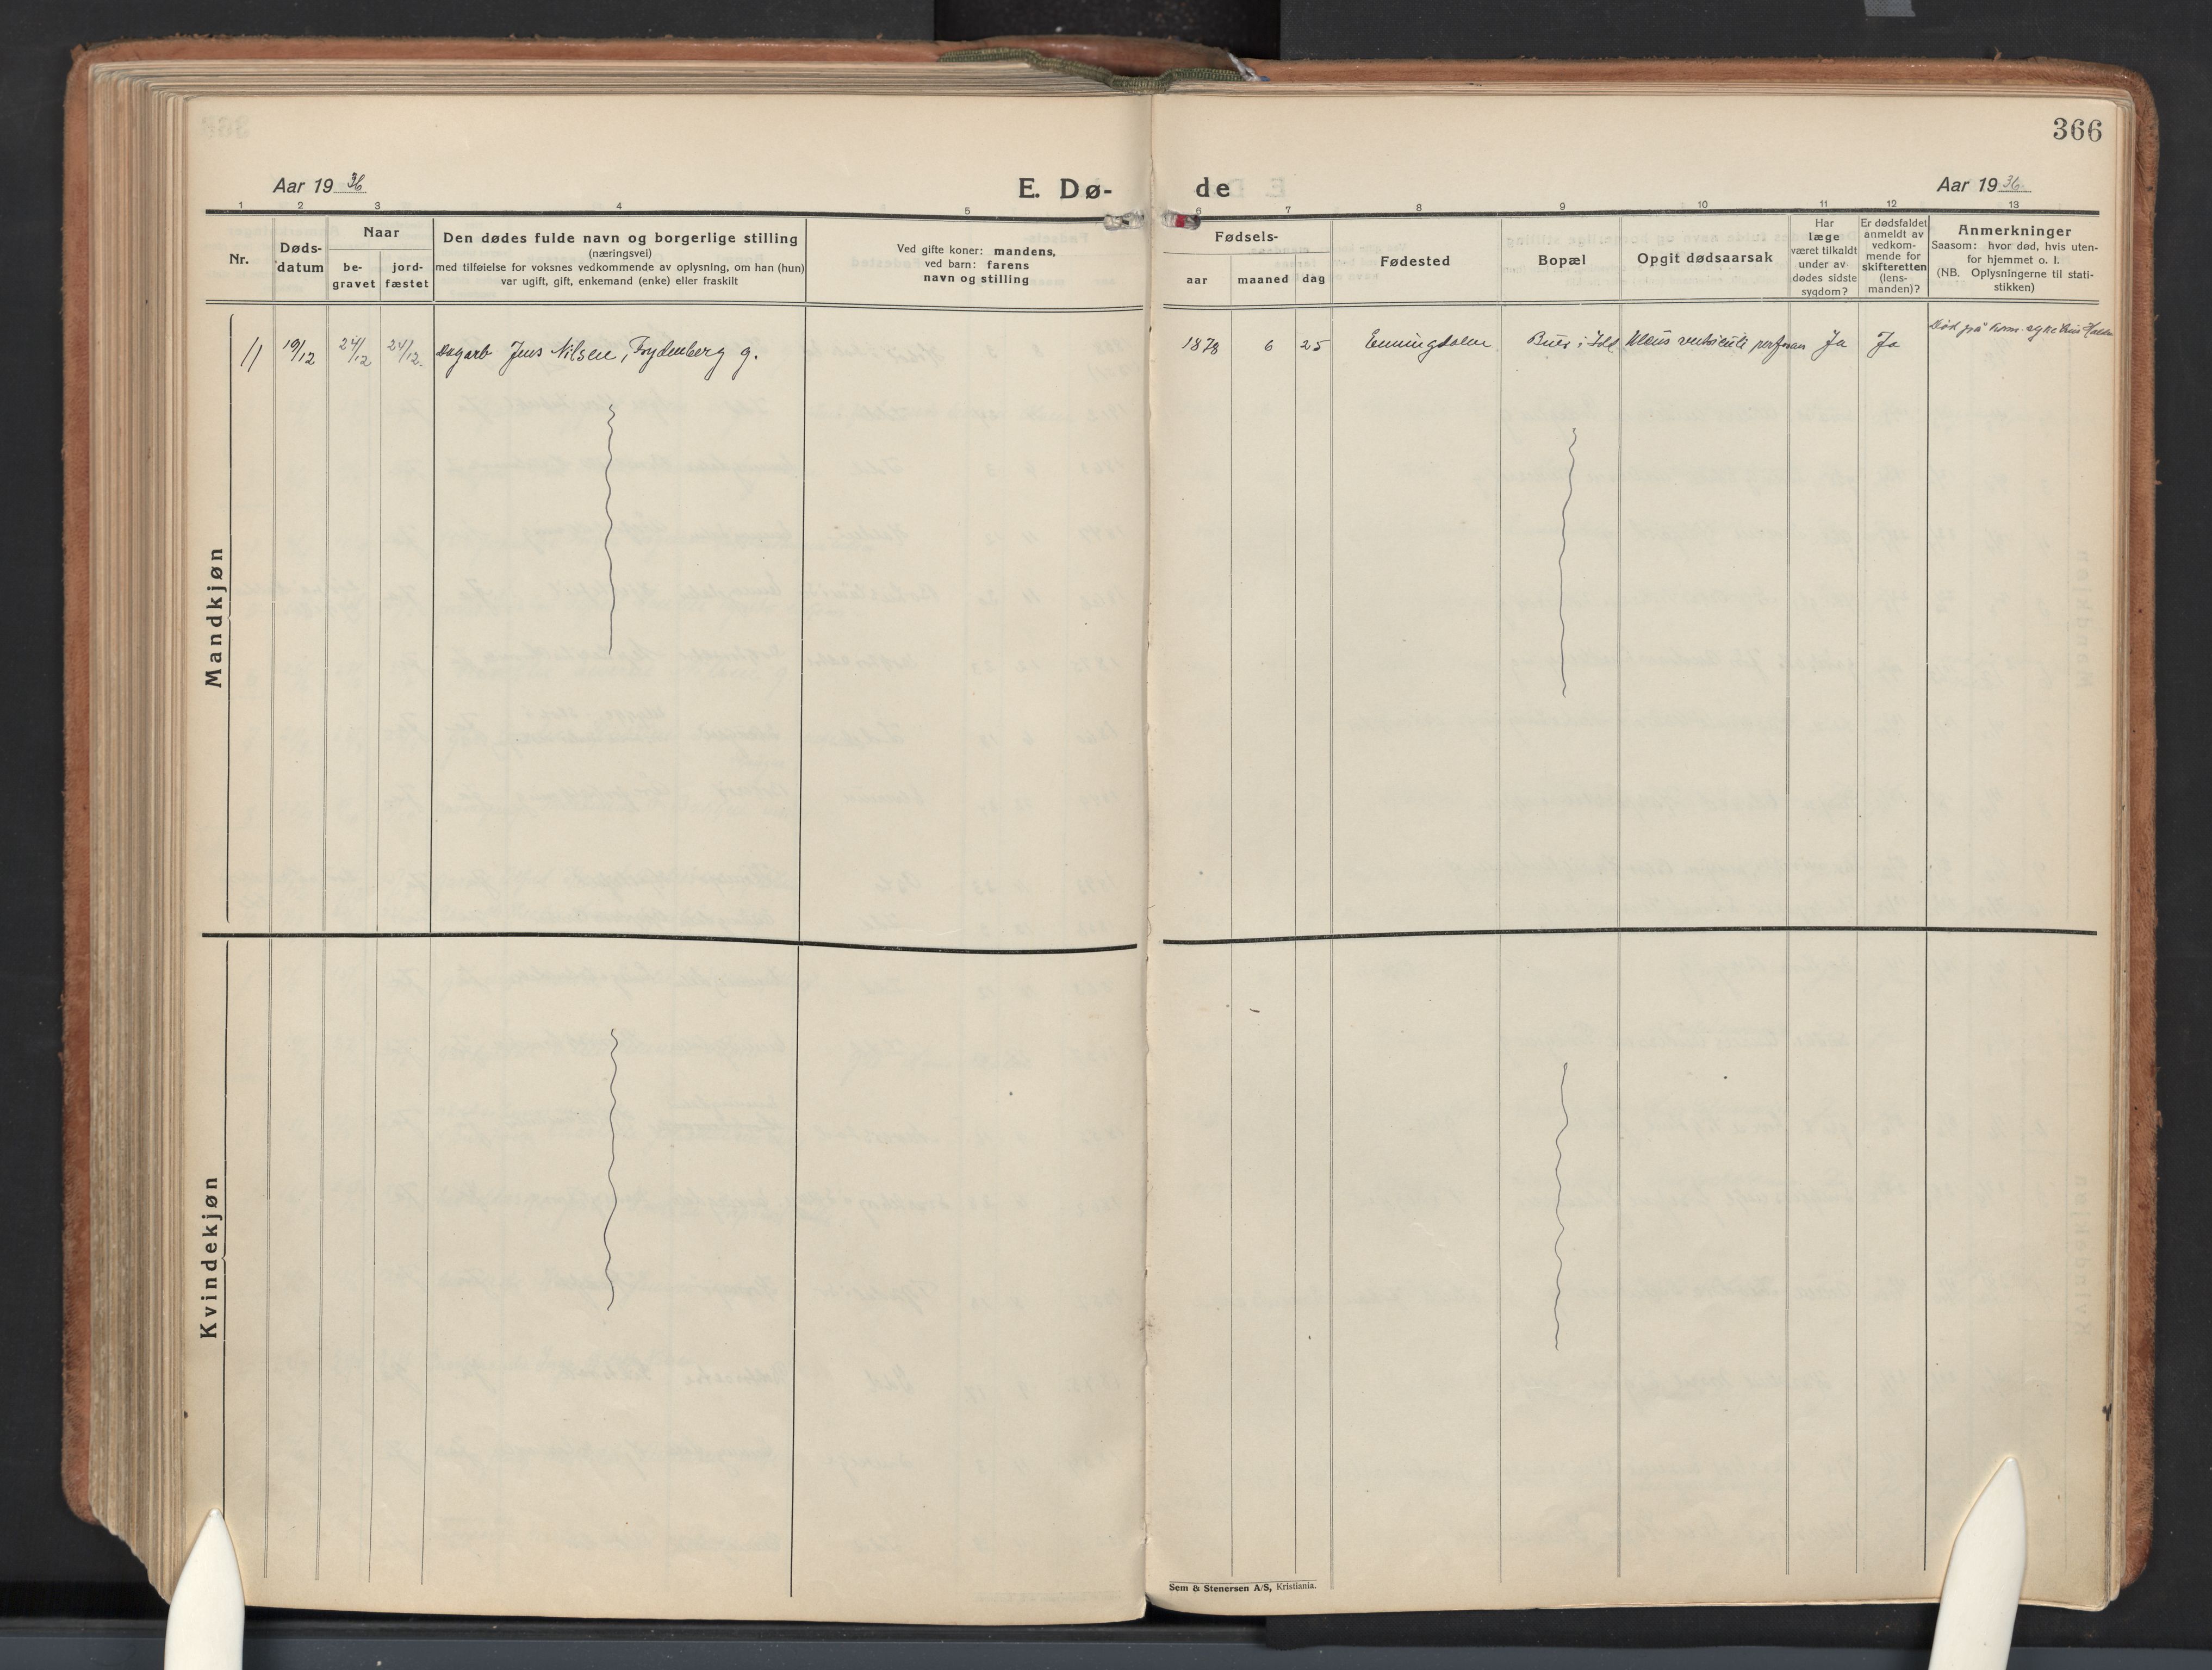 366
Aar 1936
E. Dø-
de
Aar 1936
1 2 3 4 5 6 7 8 9 10 11 12 13
Nr.
Døds-
datum
Naar
be-
gravet
jord-
fæstet
Den dødes fulde navn og borgerlige stilling
(næringsvei)
med tilføielse for voksnes vedkommende av oplysning, om han (hun)
var ugift, gift, enkemand (enke) eller fraskilt
Ved gifte koner: mandens,
ved barn: farens
navn og stilling
Fødsels-
aar
maaned
dag
Fødested
Bopæl
Opgit dødsaarsak
Har
læge
været tilkaldt
under av-
dødes sidste
sygdom?
Er dødsfaldet
anmeldt av
vedkom-
mende for
skifteretten
(lens-
manden)?
Anmerkninger
Saasom: hvor død, hvis uten-
for hjemmet o. l.
(NB. Oplysningerne til stati-
stikken)
Mandkjøn
11 19/12 24/12 24/12. Dagarb Jens Nilsen, Frydenberg g. 1878 6 25 Enningdalen Buer i Idd Ulcus ventriculi perforans Ja Ja Død på kom. sykehus Halden
Kvindekjøn
Sem & Stenersen A/S, Kristiania.